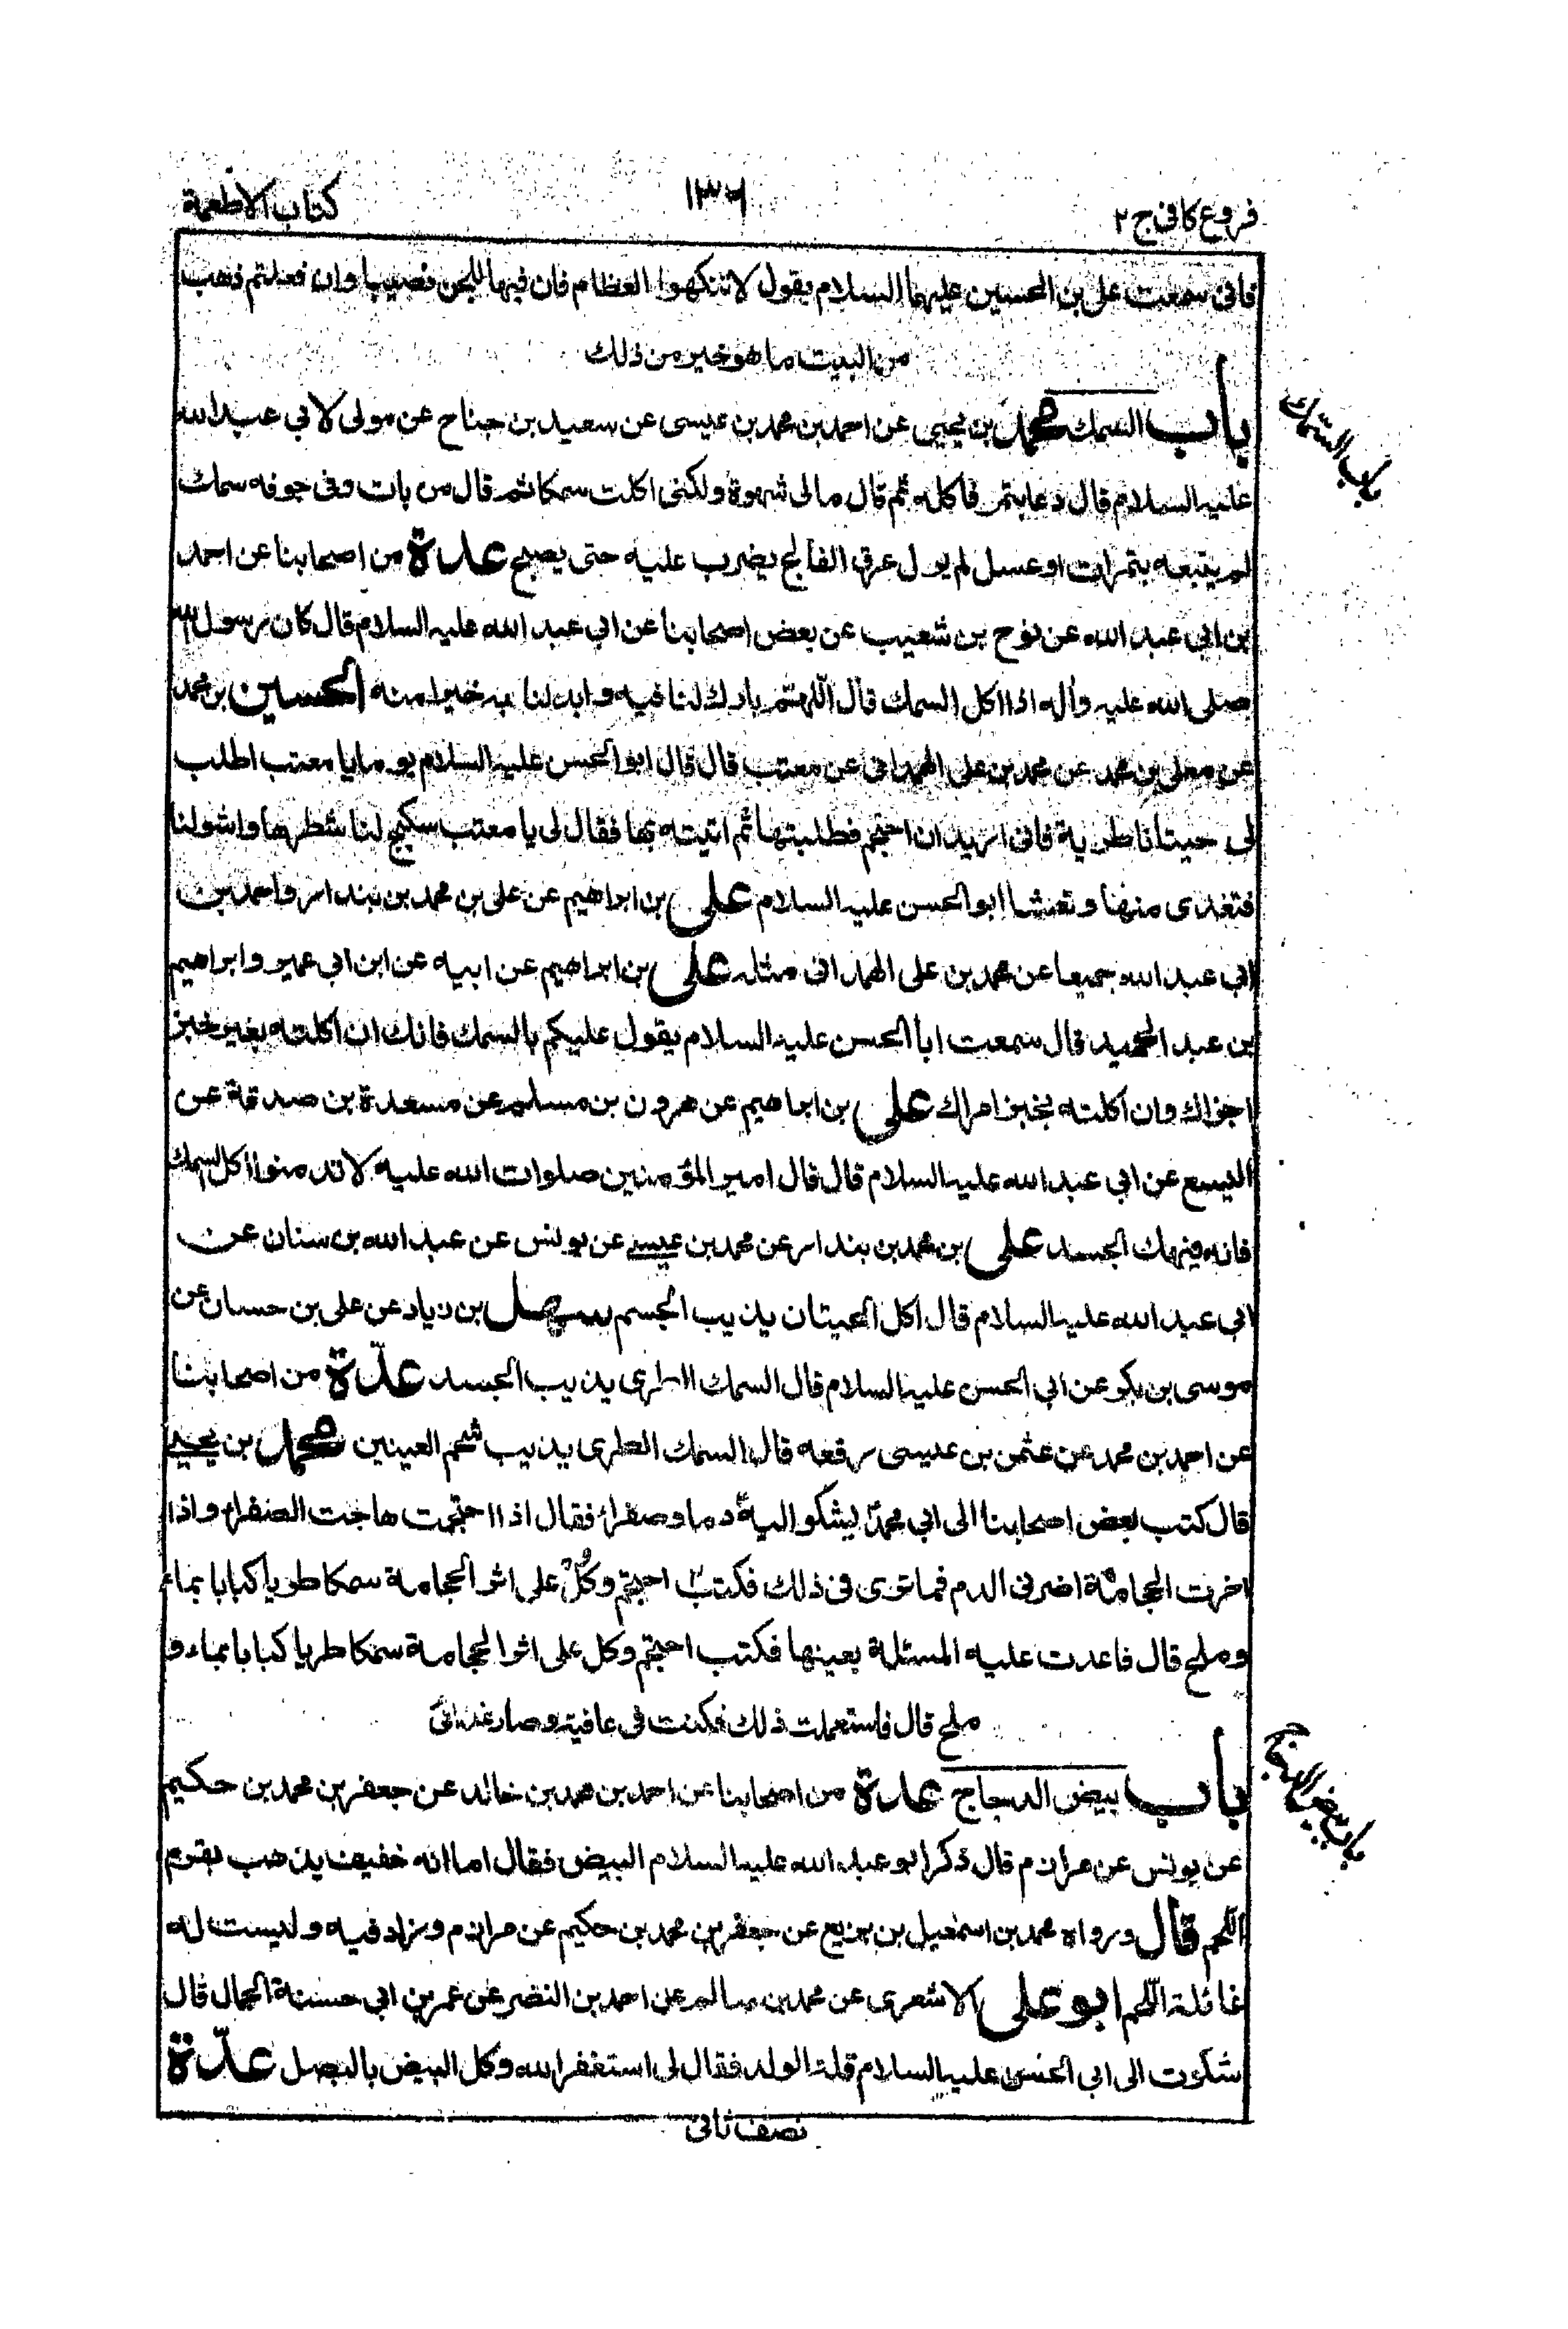 فروع كافى ج ٢
١٣٦
كتاب الاطعمة
فانى سمعت على بن الحسين عليهما السلام يقول لا تنهكوا العظام فان فيها للجن نصيبا وان فعلتم ذهب
من البيت ما هو خير من ذلك
باب السمك محمد بن يحيى عن احمد بن محمد بن عيسى عن سعيد بن جناح عن مولى لابى عبد الله
عليه السلام قال دعا بتمر فاكله ثم قال ما لى شهوة ولكنى اكلت سمكا ثم قال من بات وفى جوفه سمك
لم يتبعه بتمرات او عسل لم يزل عرق الفالج يضرب عليه حتى يصبح عدة من اصحابنا عن احمد
بن ابى عبد الله عن نوح بن شعيب عن بعض اصحابنا عن ابى عبد الله عليه السلام قال كان رسول الله
صلى الله عليه وآله اذا اكل السمك قال اللهم بارك لنا فيه وابدلنا به خيرا منه الحسين بن محمد
عن معلى بن محمد عن محمد بن على الهمدانى عن معتب قال قال ابو الحسن عليه السلام يوما يا معتب اطلب
لى حيتانا طرية فانى اريد ان احتجم فطلبتها ثم اتيته بها فقال لى يا معتب سكبج لنا شطرها واشو لنا
فتغدى منها وتعشا ابو الحسن عليه السلام على بن ابراهيم عن على بن محمد بن بندار واحمد بن
ابى عبد الله جميعا عن محمد بن على الهمدانى مثله على بن ابراهيم عن ابيه عن ابن ابى عمير وابراهيم
بن عبد الحميد قال سمعت ابا الحسن عليه السلام يقول عليكم بالسمك فانك ان اكلته بغير خبز
اجزاك وان اكلته بخبز امراك على بن ابراهيم عن هرون بن مسلم عن مسعدة بن صدقة عن
اليسع عن ابى عبد الله عليه السلام قال قال امير المؤمنين صلوات الله عليه لا تدمنوا اكل السمك
فانه ينهك الجسد على بن محمد بن بندار عن محمد بن عيسى عن يونس عن عبد الله بن سنان عن
ابى عبد الله عليه السلام قال اكل الحيتان يذيب الجسم سهل بن زياد عن على بن حسان عن
موسى بن بكر عن ابى الحسن عليه السلام قال السمك الطرى يذيب الجسد عدّة من اصحابنا
عن احمد بن محمد عن عثمن بن عيسى رفعه قال السمك الطرى يذيب شحم العينين محمد بن يحيى
قال كتب بعض اصحابنا الى ابى محمد يشكو اليه دما وصفراء فقال اذا احتجمت هاجت الصفراء واذا
اخرت الحجامة اضرنى الدم فما ترى فى ذلك فكتب احتجم وكُل على اثر الحجامة سمكا طريا كبابا بماء
وملح قال فاعدت عليه المسئلة بعينها فكتب احتجم وكل على اثر الحجامة سمكا طريا كبابا بماء و
ملح قال فاستعملت ذلك فكنت فى عافية وصار غذائى
باب بيض الدجاج عدة من اصحابنا عن احمد بن محمد بن خالد عن جعفر بن محمد بن حكيم
عن يونس عن مرازم قال ذكر ابو عبد الله عليه السلام البيض فقال اما انه خفيف يذهب بقرم
اللحم قال ورواه محمد بن اسمعيل بن بزيع عن جعفر بن محمد بن حكيم عن مرازم وزاد فيه وليست له
غائلة اللحم ابو على الاشعرى عن محمد بن سالم عن احمد بن النضر عن عمر بن ابى حسنة الجمال قال
شكوت الى ابى الحسن عليه السلام قلة الولد فقال لى استغفر الله وكل البيض بالبصل عدّة
نصف ثانى
باب السمك
باب بيض الدجاج